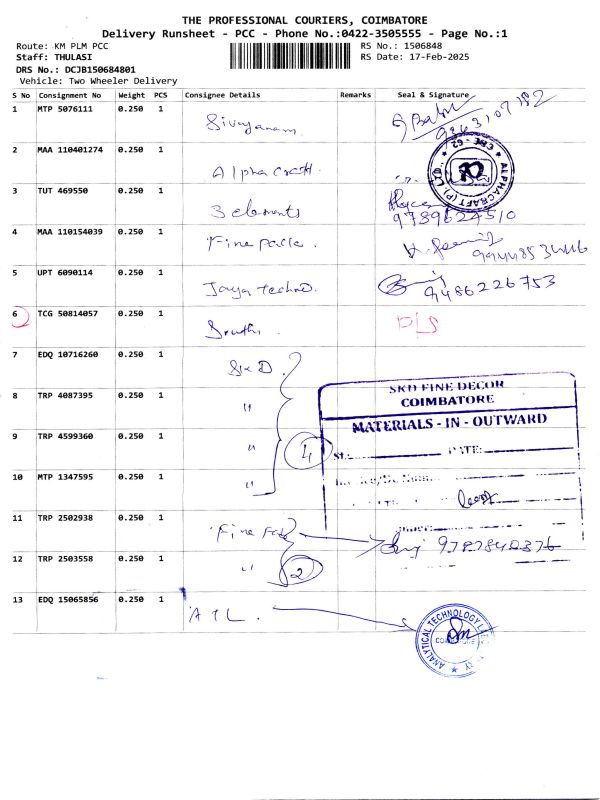 THE PROFESSIONAL COURIERS, COIMBATORE
Delivery Runsheet - PCC - Phone No.:0422-3505555 - Page No.:1
Route: KM PLM PCC
RS No.: 1506848
Staff: THULASI
RS Date: 17-Feb-2025
DRS No.: DCJB150684801
Vehicle: Two Wheeler Delivery
S No Consignment No Weight PCS Consignee Details Remarks Seal & Signature
1 MTP 5076111 0.250 1
2 MAA 110401274 0.250 1 Alpha craft.
ALPHACRAFT (P) LTD
3 TUT 469550 0.250 1 3 elements 9789624510
4 MAA 110154039 0.250 1 Fine packs.
5 UPT 6090114 0.250 1 Jaya techno. 9486226753
6 TCG 50814057 0.250 1 D/S
7 EDQ 10716260 0.250 1 SKD.
8 TRP 4087395 0.250 1 "
9 TRP 4599360 0.250 1 " 4
10 MTP 1347595 0.250 1 "
SKD FINE DECOR
COIMBATORE
MATERIALS - IN - OUTWARD
DATE:
11 TRP 2502938 0.250 1 Fine
9787840376
12 TRP 2503558 0.250 1 " 2
13 EDQ 15065856 0.250 1 ATL.
ANALYTICAL TECHNOLOGY